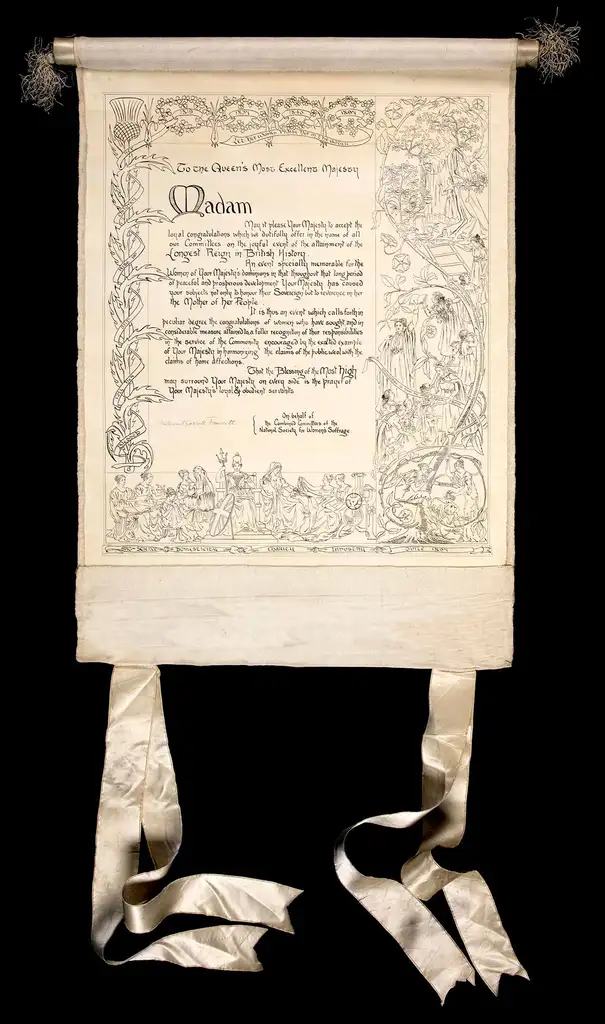 1819 1837 1840 1897
To the Queen's Most Excellent Majesty
Madam
May it please Your Majesty to accept the
loyal congratulations which we dutifully offer in the name of all
our Committees on the joyful event of the attainment of the
Longest Reign in British History.
An event specially memorable for the
Women of Your Majesty's dominions in that throughout that long period
of peaceful and prosperous development Your Majesty has caused
your subjects not only to honour their Sovereign but to reverence in her
the Mother of Her People.
It is thus an event which calls forth in
peculiar degree the congratulations of women who have sought and in
considerable measure attained to a fuller recognition of their responsibilities
in the service of the Community encouraged by the exalted example
of Your Majesty in harmonizing the claims of the public weal with the
claims of home affections.
That the Blessing of the Most High
may surround Your Majesty on every side is the prayer of
Your Majesty's loyal & obedient servants
On behalf of
the Combined Committees of the
National Society for Women's Suffrage.
Millicent Garrett Fawcett
Domesticity Charity Industry June 1897